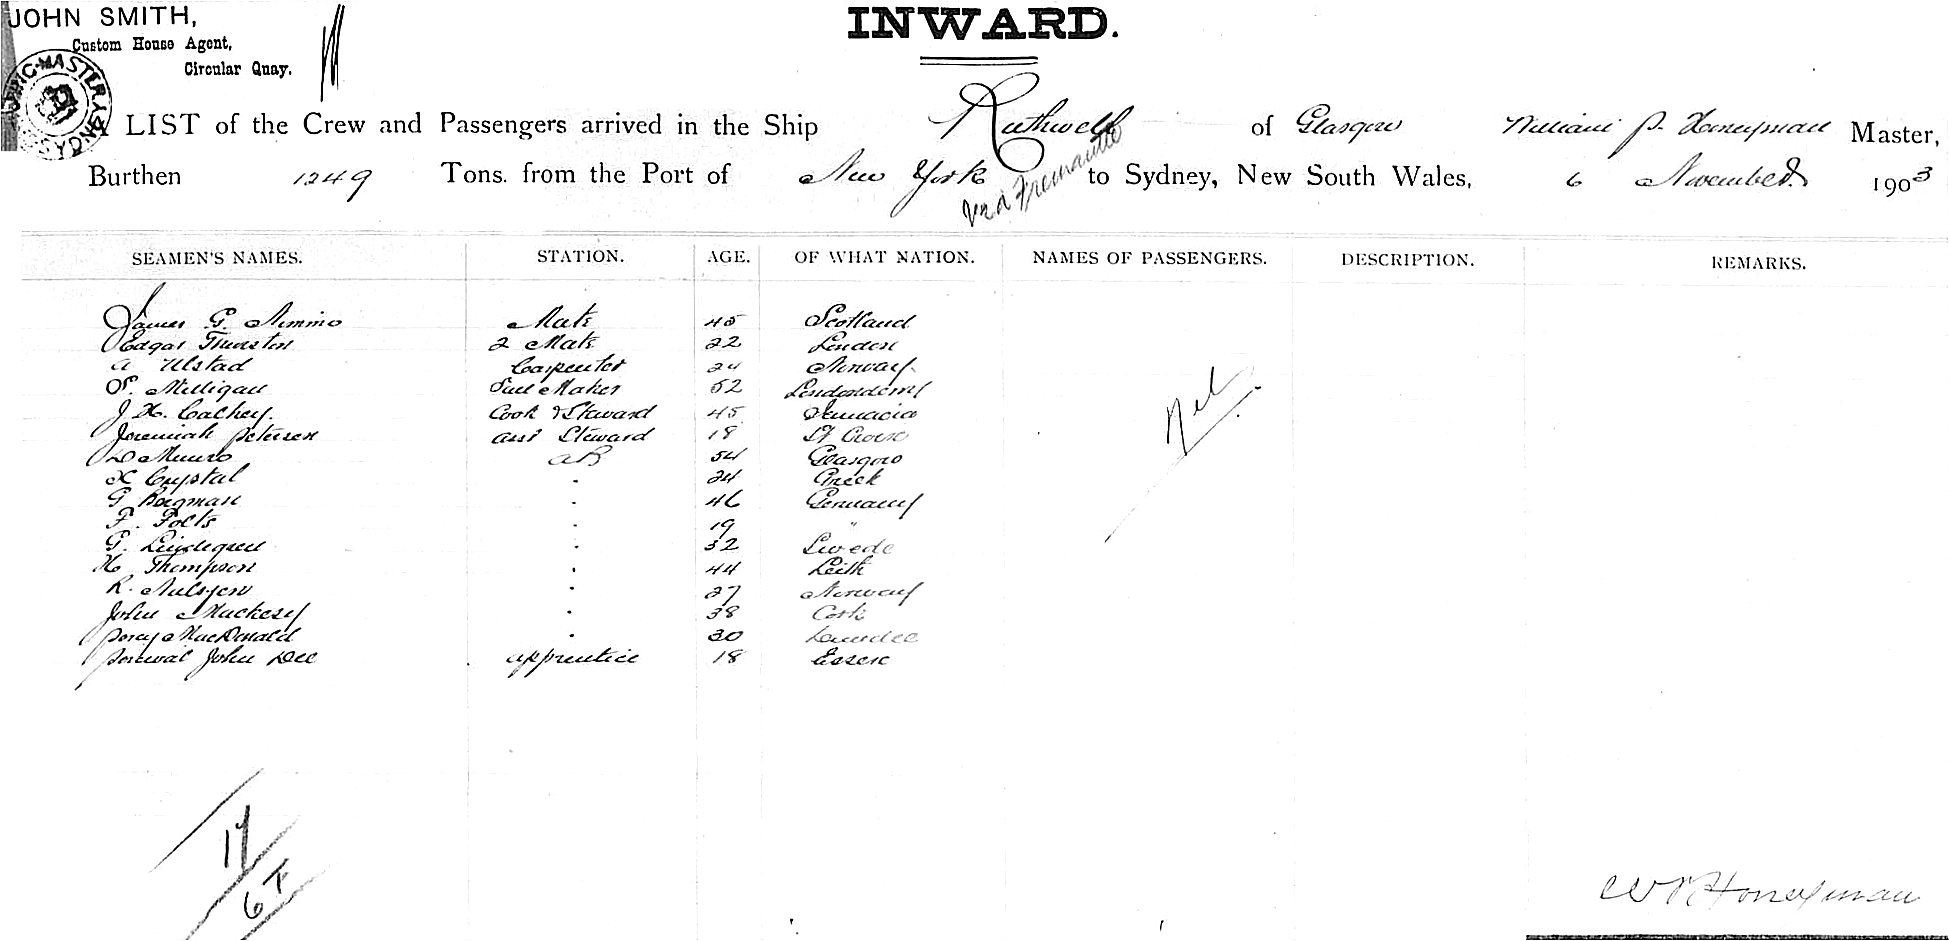 JOHN SMITH,
Custom House Agent,
Circular Quay.
INWARD.
A LIST of the Crew and Passengers arrived in the Ship Ruthwell of Glasgow William P. Honeyman Master,
Burthen 1249 Tons. from the Port of New York via Fremantle to Sydney, New South Wales, 6 November 1903
SEAMEN'S NAMES. STATION. AGE. OF WHAT NATION. NAMES OF PASSENGERS. DESCRIPTION. REMARKS.
James G. Nimmo Mate 45 Scotland
Edgar Thurston 2 Mate 22 London
A Ulstad Carpenter 24 Norway
S. Milligan Sail Maker 52 Londonderry
J. H. Cachey. Cook & Steward 45 Jamacia
Jeremiah Petersen Asst Steward 18 St Croix
D Munro AB 54 Glasgow
X Crystal " 24 Greek
G Bergman " 46 Germany
F. Folts " 19 "
G. Lindegren " 32 Swede
H Thompson " 44 Leith
R. Neilsjen " 27 Norway
John Mackesy " 38 Cork
Percy MacDonald " 30 Dundee
Percival John Dee Apprentice 18 Essex
Nil
17
6 F
W P Honeyman